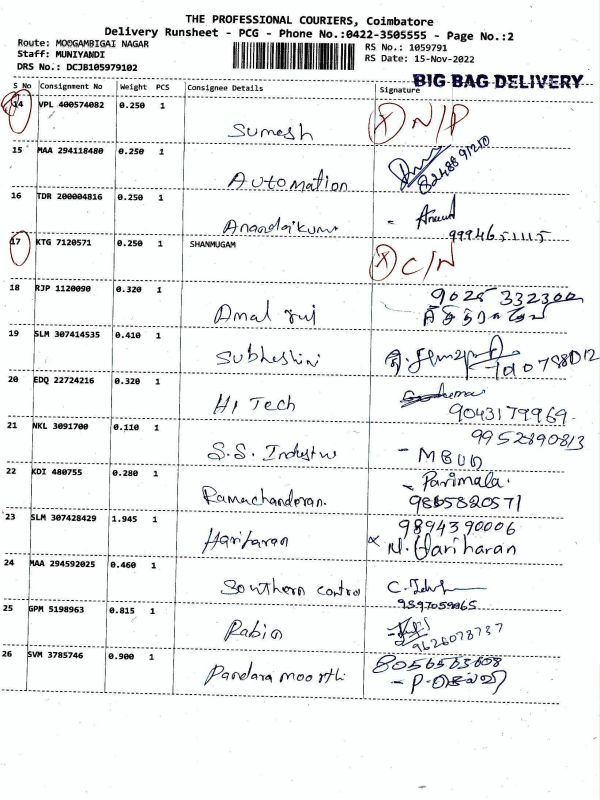 THE PROFESSIONAL COURIERS, Coimbatore
Delivery Runsheet - PCG - Phone No.:0422-3505555 - Page No.:2
Route: MOOGAMBIGAI NAGAR
RS No.: 1059791
Staff: MUNIYANDI
RS Date: 15-Nov-2022
DRS No.: DCJB105979102
BIG BAG DELIVERY
S No Consignment No Weight PCS Consignee Details Signature
14 VPL 400574082 0.250 1
Sumesh X N/P
15 MAA 294118480 0.250 1
Automation
16 TDR 200004816 0.250 1
Anandakumar - Anand
9994651115
17 KTG 7120571 0.250 1 SHANMUGAM
X C/N
18 RJP 1120090 0.320 1
Amal raj 9025 332300
19 SLM 307414535 0.410 1
Subhashini
20 EDQ 22724216 0.320 1
Hi Tech
9043179969
21 NKL 3091700 0.110 1
9952890813
S.S. Industri - MBUD
22 KDI 480755 0.280 1
- Parimala.
Ramachandran. 9865820571
23 SLM 307428429 1.945 1
9894390006
Hariharan x N. Hariharan
24 MAA 294592025 0.460 1
Southern control
9597059965
25 GPM 5198963 0.815 1
Rabin
9626073737
26 SVM 3785746 0.900 1
8056563608
Pandara moorthi